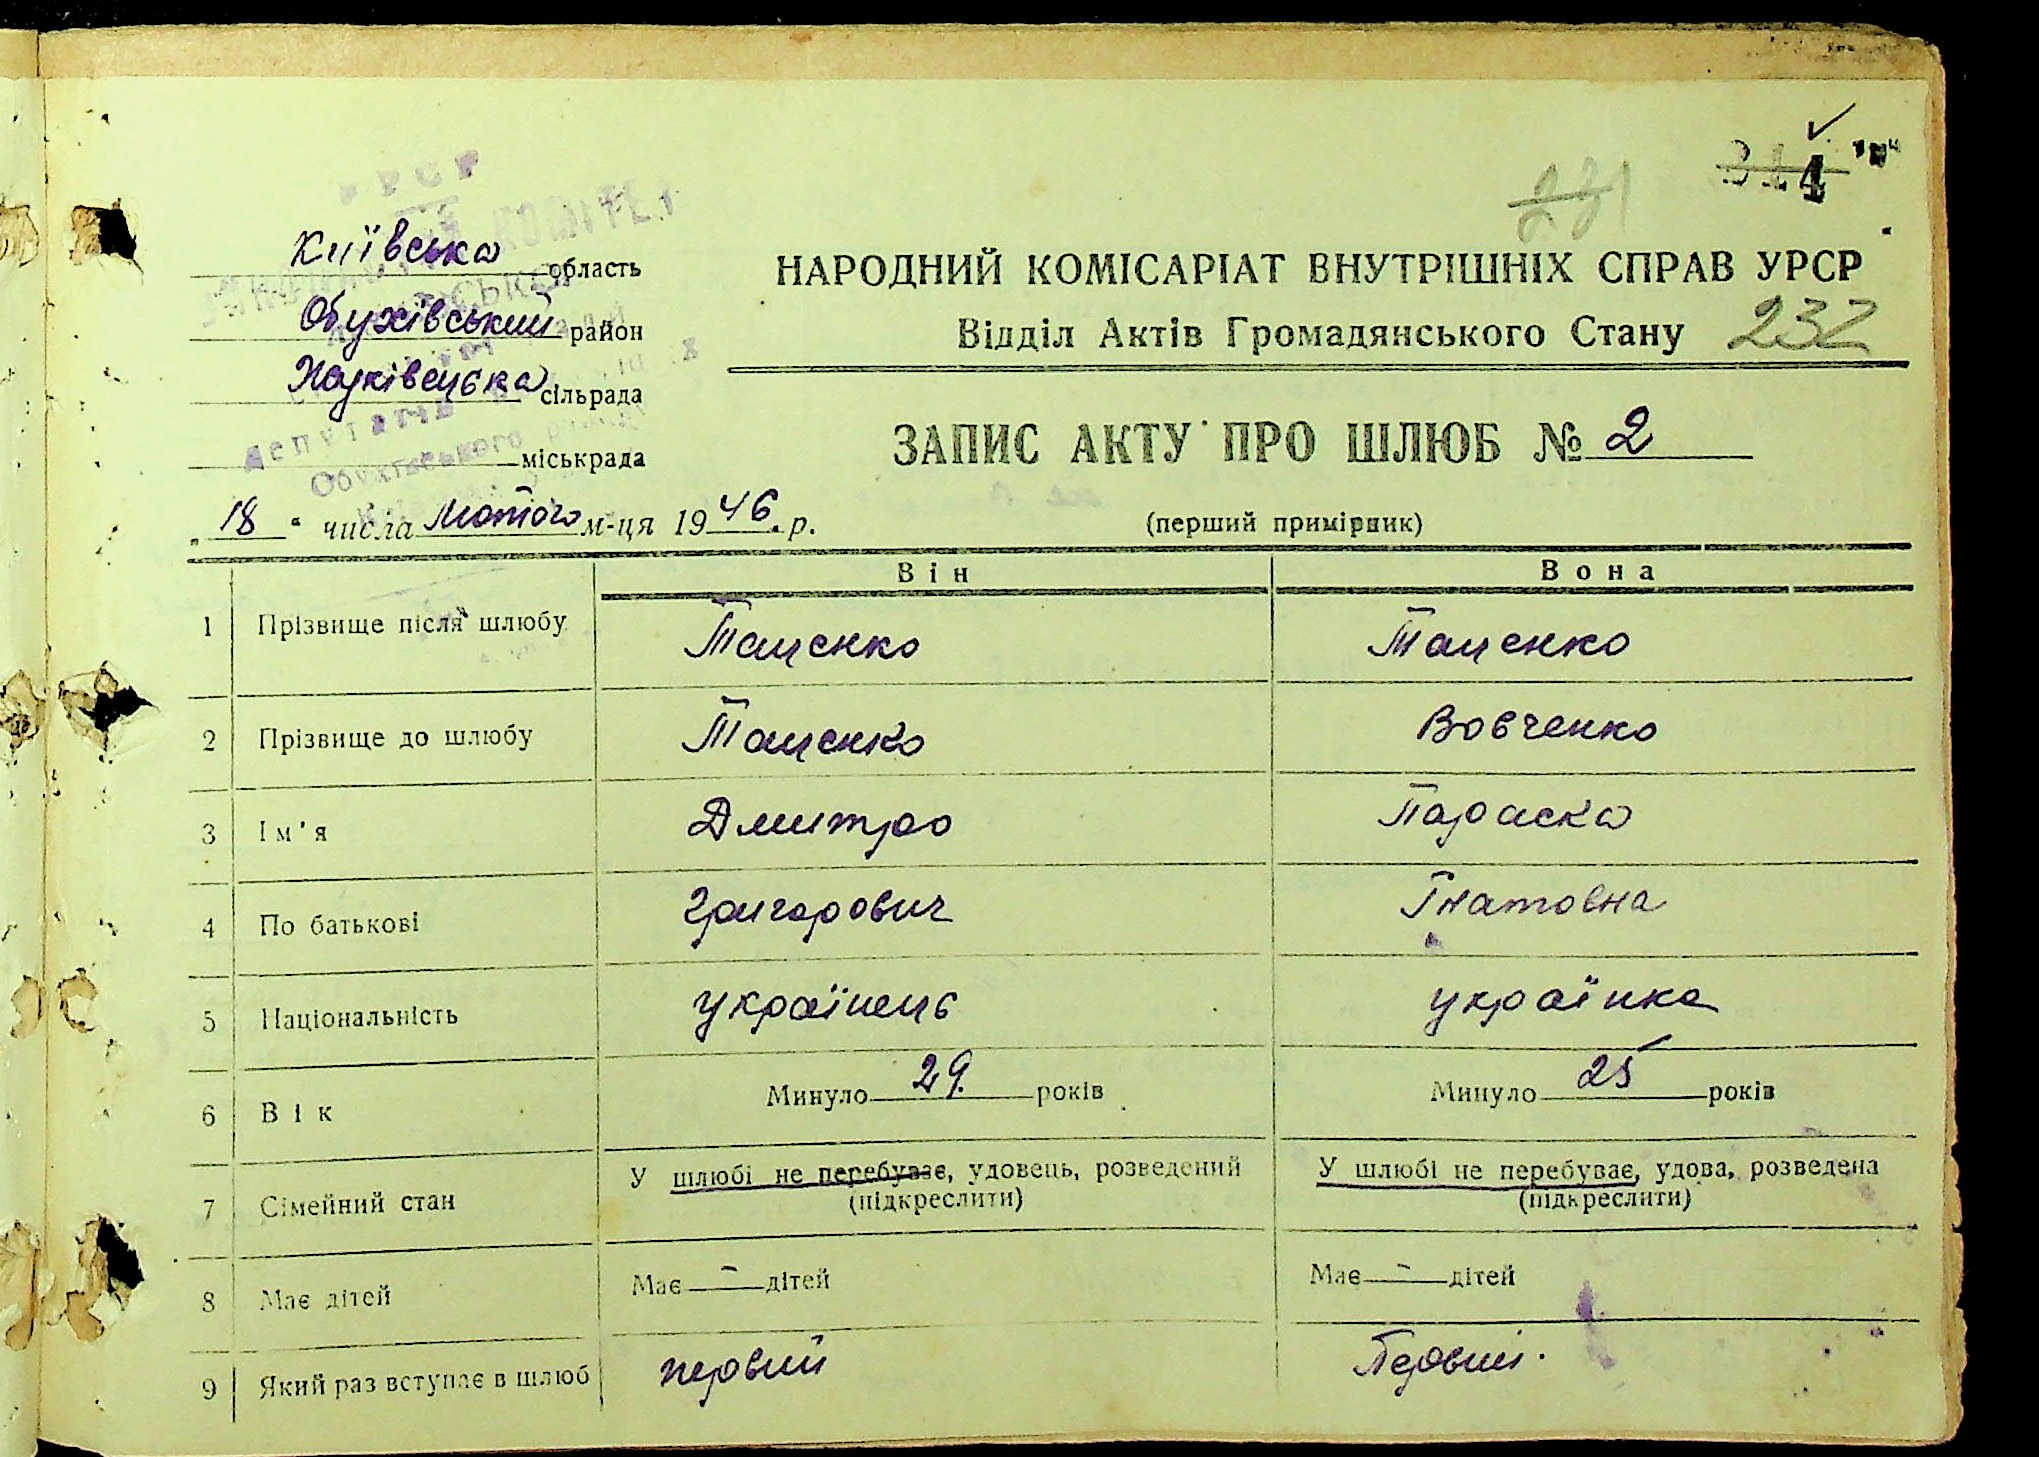 314
231
Київська область
Обухівський район
сільрада
міськрада
НАРОДНИЙ КОМІСАРІАТ ВНУТРІШНІХ СПРАВ УРСР
Відділ Актів Громадянського Стану 232
ЗАПИС АКТУ ПРО ШЛЮБ № 2
„18“ числа Лютого м-ця 1946 р.
(перший примірник)
Він Вона
1 Прізвище після шлюбу Таценко Таценко
2 Прізвище до шлюбу Таценко Вовченко
3 Ім'я Дмитро Параска
4 По батькові Григорович Гнатовна
5 Національність українець українка
6 Вік Минуло 29. років Минуло 25 років
7 Сімейний стан У шлюбі не перебуває, удовець, розведений (підкреслити) У шлюбі не перебуває, удова, розведена (підкреслити)
8 Має дітей Має — дітей Має — дітей
9 Який раз вступає в шлюб первий Первий.